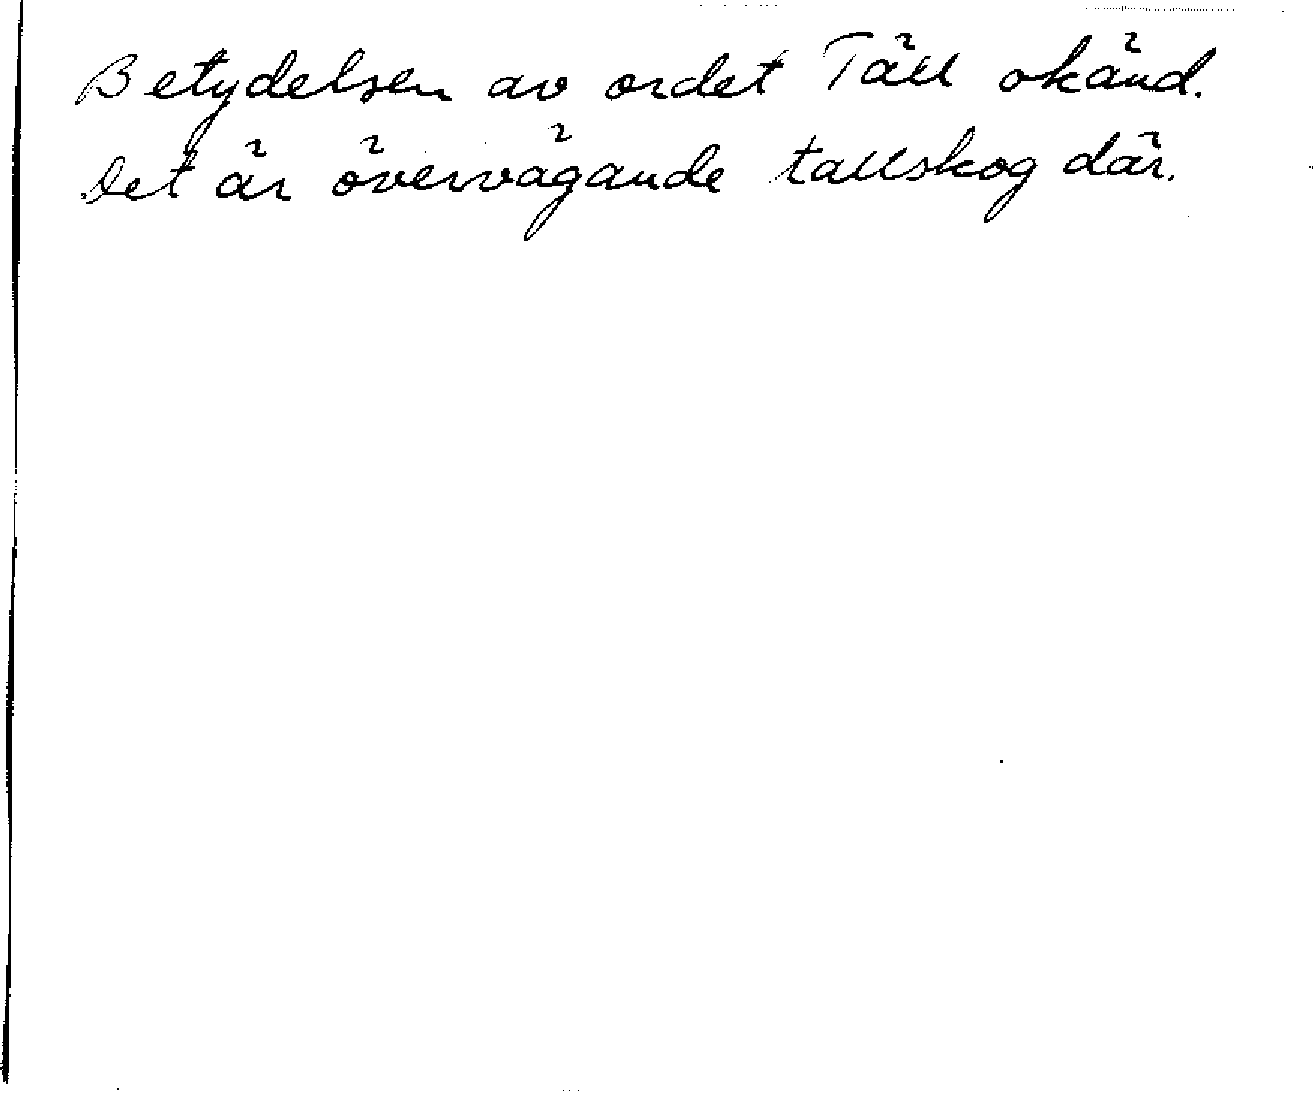 Betydelsen av ordet Täll okänd.
Det är övervägande tallskog där.